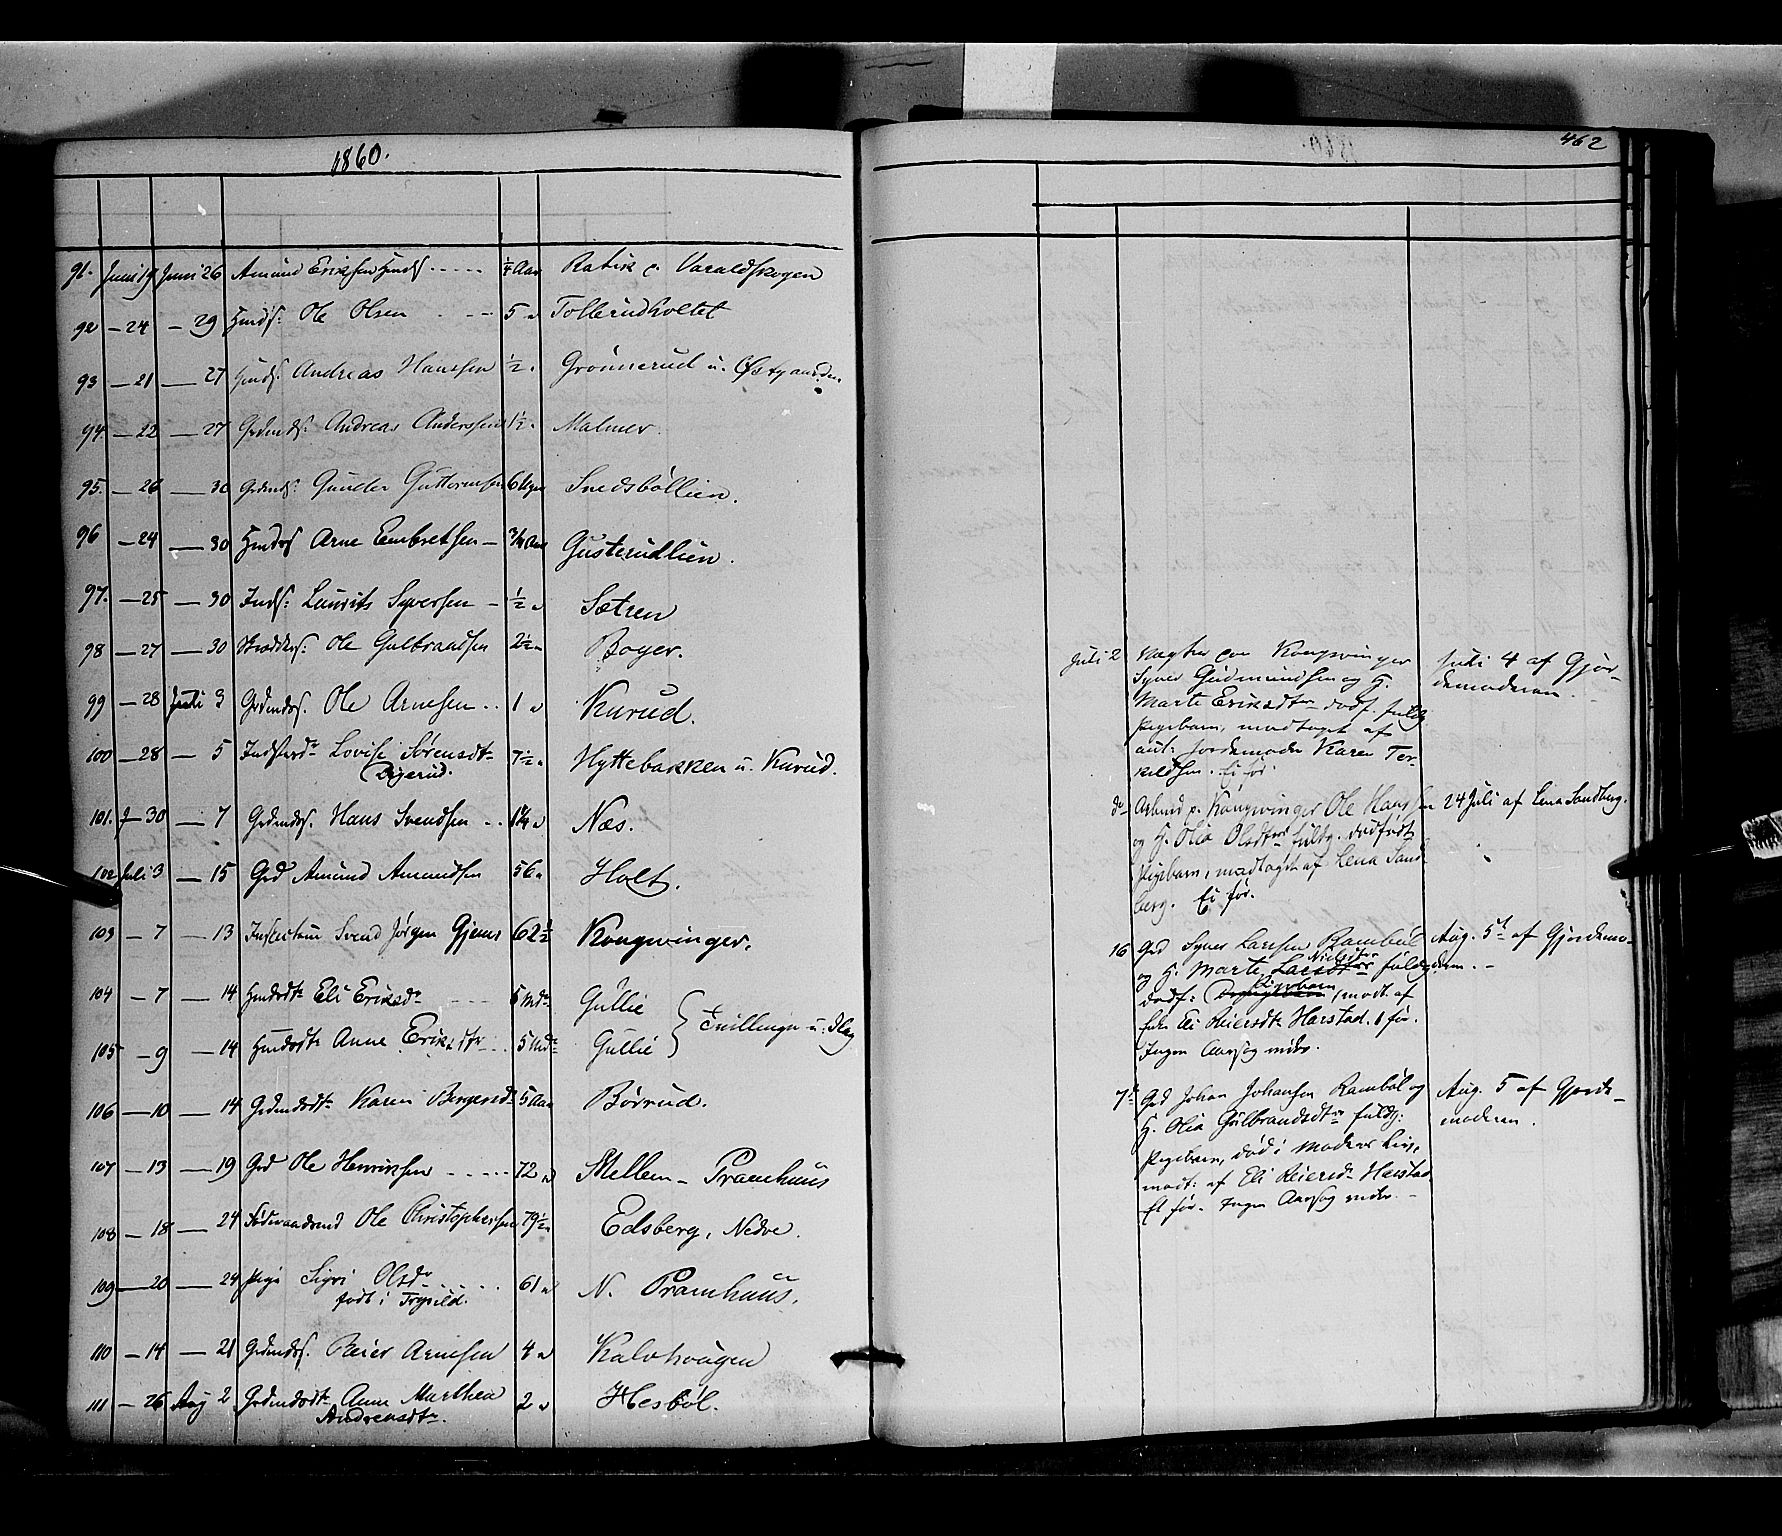 1860.
91. Juni 19 Juni 26 Amund Eriksen Hmds. ..... ¼ Aar Ratik p. Varaldskogen
92 — 24 — 29 Hmds: Ole Olsen . -- 5 " Tollerudholtet
93 — 21 — 27 Hmds. Andreas Hanssen ½ " Grönnerud u. Østgaarden
94. — 22 — 27 Grdmds: Andreas Anderssen 1½ " Malmer.
95. — 26 — 30 Grdmds: Gunder Guttormsen 6 Uger Snedsböllien.
96 — 24 — 30 Hmds Arne Embretsen — ¾ Aar Gusterudlien.
97. — 25 — 30 Inds: Laurits Syversen — ½ " Sætren
98 — 27 — 30 Skrædders: Ole Gulbrandsen 2½ " Boger.
99 — 28 Juli 3 Grdmds. Ole Arnesen .. 1 " Kurud.
100 — 28 — 5 Lovise Sørensdtr 7½ " Hyttebakken u. Kurud.
Digerud.
101. J— 30 — 7 Grdmds. Hans Svendsen .. 1¼ " Næs.
102 Juli 3 — 15 Grd Amund Amundsen 56 " Holt.
103 — 7 — 13 Svend Jørgen Gjems 62½ Kongsvinger.
104 — 7 — 14 Hmdsdtr Eli Eriksdr --- 5 Mdr Gullie
105 — 9 — 14 Hmdsdtr Anne Eriksdtr .. 5 Mdr Gullie } Tvillinger
106 — 10 — 14 Grdmdsdtr Karen Bergersdr 5 Aar Börrud.
107 — 13 — 19 Grd Ole Henriksen ..... 72 " Mellem - Pramhuus
108 — 18 — 24 Ole Christophersen 79½ " Edsberg, Nedre.
109 — 20 — 24 Pige Sigri Olsdr ..... 61 " N. Pramhuus.
født i Trysild.
110 — 14 — 21 Grdmds. Reier Arnesen 4 " Kalvhaugen
111 — 26 Aug 2 Grdmdsdtr Anne Marthea 2 " Hesböl.
Andreasdtr.
462
Juli 2 Vægter paa Kongsvinger
Syver Gudmundsen og H.
Marte Eriksdtr dødf. fuldb.
Pigebarn, modtaget af
aut: Jordemoder Karen Ter-
kildsen. Ei før.
Juli 4 af Gjor-
demoderen.
do Arbmd p. Kongsvinger Ole Hanssen
og H. Olia Olsdtr fuldb. dødfødt
Pigebarn, modtaget af Lena Sand-
berg. Ei før.
24 Juli af Lena Sandberg.
16 Grd Syver Larssen Rambøl
og H. Marte Nielsdtr fuldb.
dødf: Pigebarn, modt. af
Eli Reiersdtr Harstad. 1 før.
Ingen Aarsag vides.
Aug. 5t af Gjordemo-
deren. -
7de Grd Johan Johansen Rambøl og
H. Olia Gulbrandsdtr fuldb:
Pigebarn, død i Moders Liv,
modt: af Eli Reiersd. Harstad
Et før. Ingen Aarsag vides. -
Aug. 5 af Gjorde-
moderen.